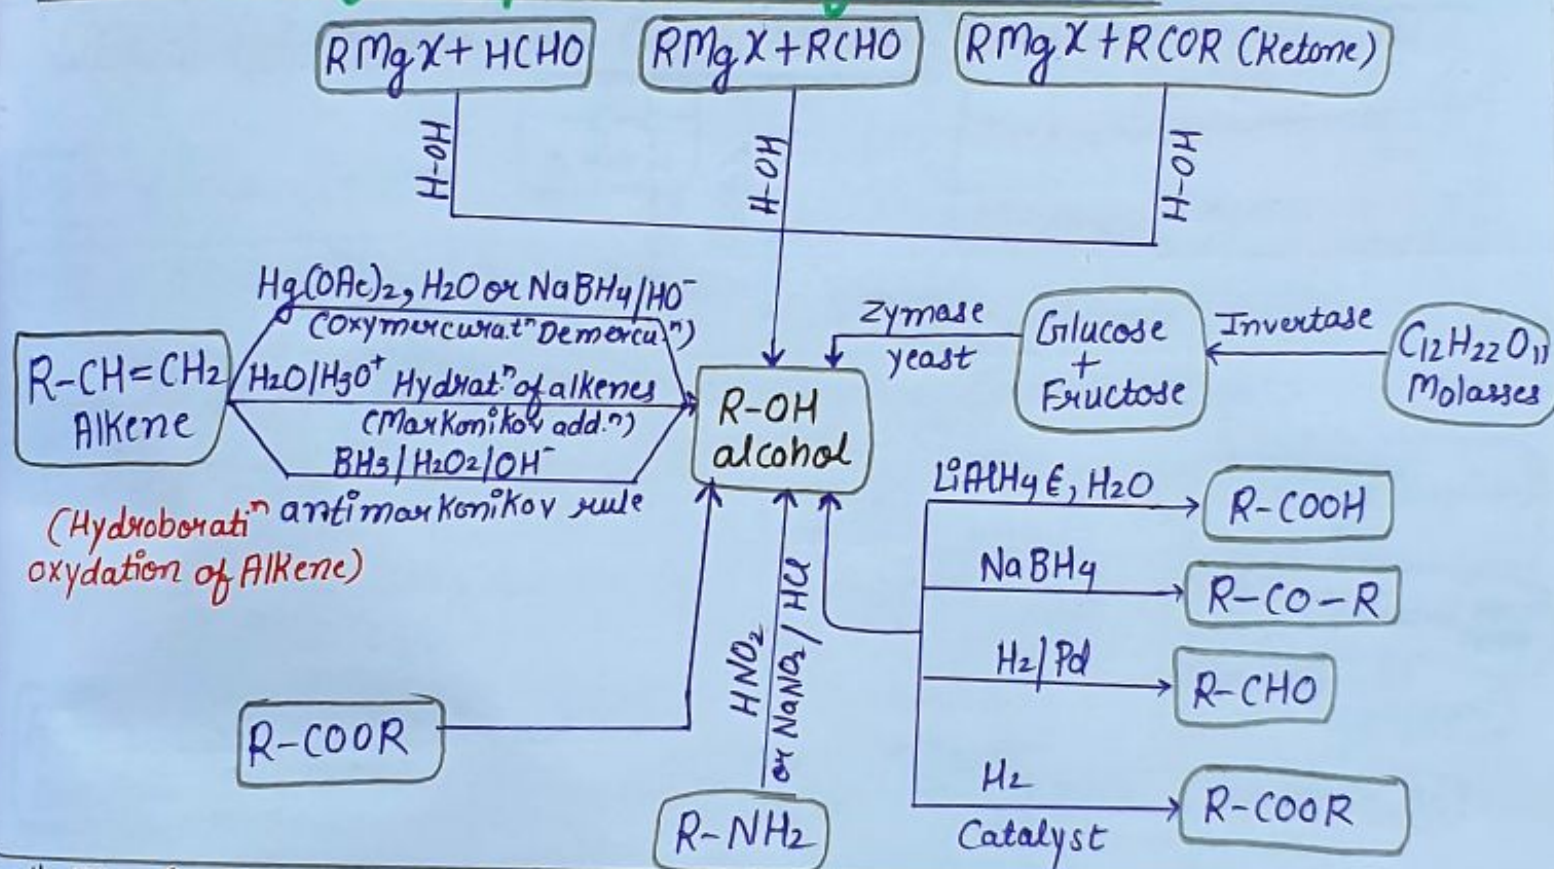 RMgX+HCHO
RMgX+RCHO
RMgX+RCOR (Ketone)
H-OH
H-OH
H-OH
Hg(OAc)2, H2O or NaBH4/HO⁻
(Oxymercurat.ⁿ Demercu.ⁿ)
R-CH=CH2
Alkene
H2O/H3O⁺ Hydrat.ⁿ of alkenes
(Markonikov add.ⁿ)
BH3/H2O2/OH⁻
antimarkonikov rule
(Hydroboratiⁿ
oxydation of Alkene)
R-OH
alcohol
Zymase
yeast
Glucose
+
Fructose
Invertase
C12H22O11
Molasses
LiAlH4 €, H2O
R-COOH
NaBH4
R-CO-R
H2/Pd
R-CHO
H2
Catalyst
R-COOR
R-COOR
HNO2
or NaNO2/HCl
R-NH2